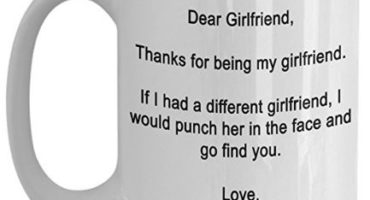 Dear Girlfriend,
Thanks for being my girlfriend.
If I had a different girlfriend, I
would punch her in the face and
go find you.
Love,